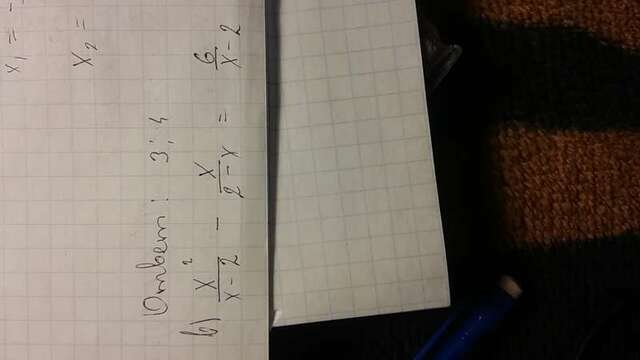 x₁ = -
x₂ =
Ответ: 3; 4
б) x²/(x - 2) - x/(2 - x) = 6/(x - 2)